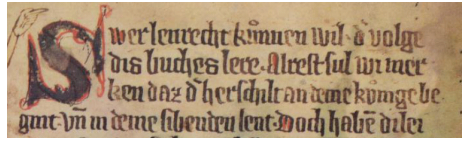 Swer lenrecht kůnnen wil · d᷎ volge
dis buches lere · Alrest sul wi mer
ken daz d᷎ herschilt an deme kůnige be
gint · vn̄ in deme sibenden lent · Doch habē di lei